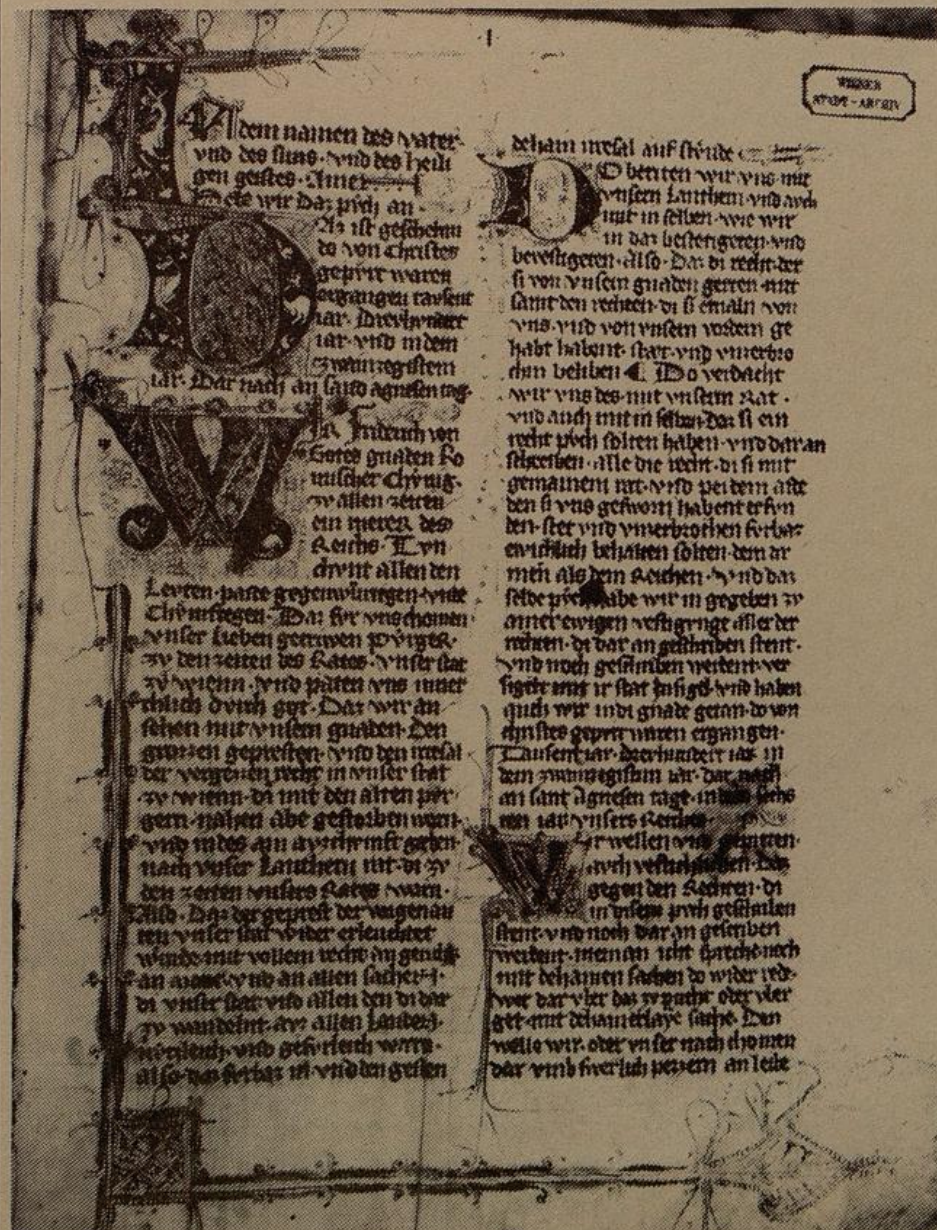 I
WIENER
STADT-ARCHIV
IN dem namen des vater·
vnd des suns· vnd des heili
gen geistes· Amen
Hebe wir daz pvch an
Az ist geschehen
do von Christes
gepvrt waren
ergangen tavsent
iar· Drevhvndert
iar· vnd in dem
zwainzegistem
iar· Dar nach an sand agnesen tag·
Wir Friderich von
Gotes gnaden Ro
mischer Chvnig·
zv allen zeiten
ein merer des
Reichs· Tvn
chvnt allen den
Levten·
Daz fvr vns chomen·
vnser lieben getriwen pvrger·
zv den zeiten des Rates· vnser stat
zv wienn· vnd paten vns inner
chlich dvrch got· Daz wir an
sehen mit vnsern gnaden· Den
grozzen gepresten· vnd den irresal
der vergezzen recht in vnser stat
zv wienn· di mit den alten pvr·
gern· nahen abe gestorben warn·
nach vnser Lantherrn rat· di zv
den zeiten vnsers Rates warn·
Also· Daz der geprest der
vnser stat wider erleuchtet
wurde· mit vollem recht
vnd an allen sachen·
di vnser stat vnd allen den di dar
zv wandelnt· avz allen landen·
nvtzleich· vnd gefvrleich warn·
also daz fvrbaz in vnd den gesten
dehain irresal auf stvnde
DO berieten wir vns mit
vnsern Lantherrn· vnd avch
mit in selben· wie wir
in daz bestetigeten· vnd
bevestigeten· Also· Daz di recht· der
si von vnsern gnaden gerten· mit
samt den rechten· di si emaln von
vns· vnd von vnsern vordern ge
habt habent· stæt· vnd vnzerbro
chen beliben Do verdacht
wir vns des· mit vnserm Rat·
vnd auch mit in selben· daz si ein
recht pvch solten haben· vnd daran
schreiben· alle die recht· di si mit
gemainem rat· vnd pei dem aide
den si vns gesworn habent erfvn
den· stet vnd vnzerbrochen fvrbaz
ewichlich behalten solten· dem ar
men als dem Reichen· Vnd daz
selbe pvch habe wir in gegeben zv
ainer ewigen vestigvnge aller der
rechten· di dar an geschriben stent·
vnd noch geschriben werdent· ver
sigelt mit ir stat Insigel· vnd haben
auch wir in di gnade getan· do von
christes gepvrt waren ergangen·
Tausent iar· drevhundert iar· in
dem zwainzegistem iar· dar nach
an sant Agnesen tage· in dem sechs
ten iar vnsers Reiches·
Wir wellen vnd gepieten·
avch Daz
gegen den Rechten· di
in disem pvch geschriben
stent· vnd noch dar an geschriben
werdent· nieman icht spreche· noch
mit dehainen sachen do wider rede·
wer dar vber daz zv pricht oder vber
get· mit dehainerlaye sache· Den
welle wir· oder vnser nach chomen
dar vmb pezzern an leibe